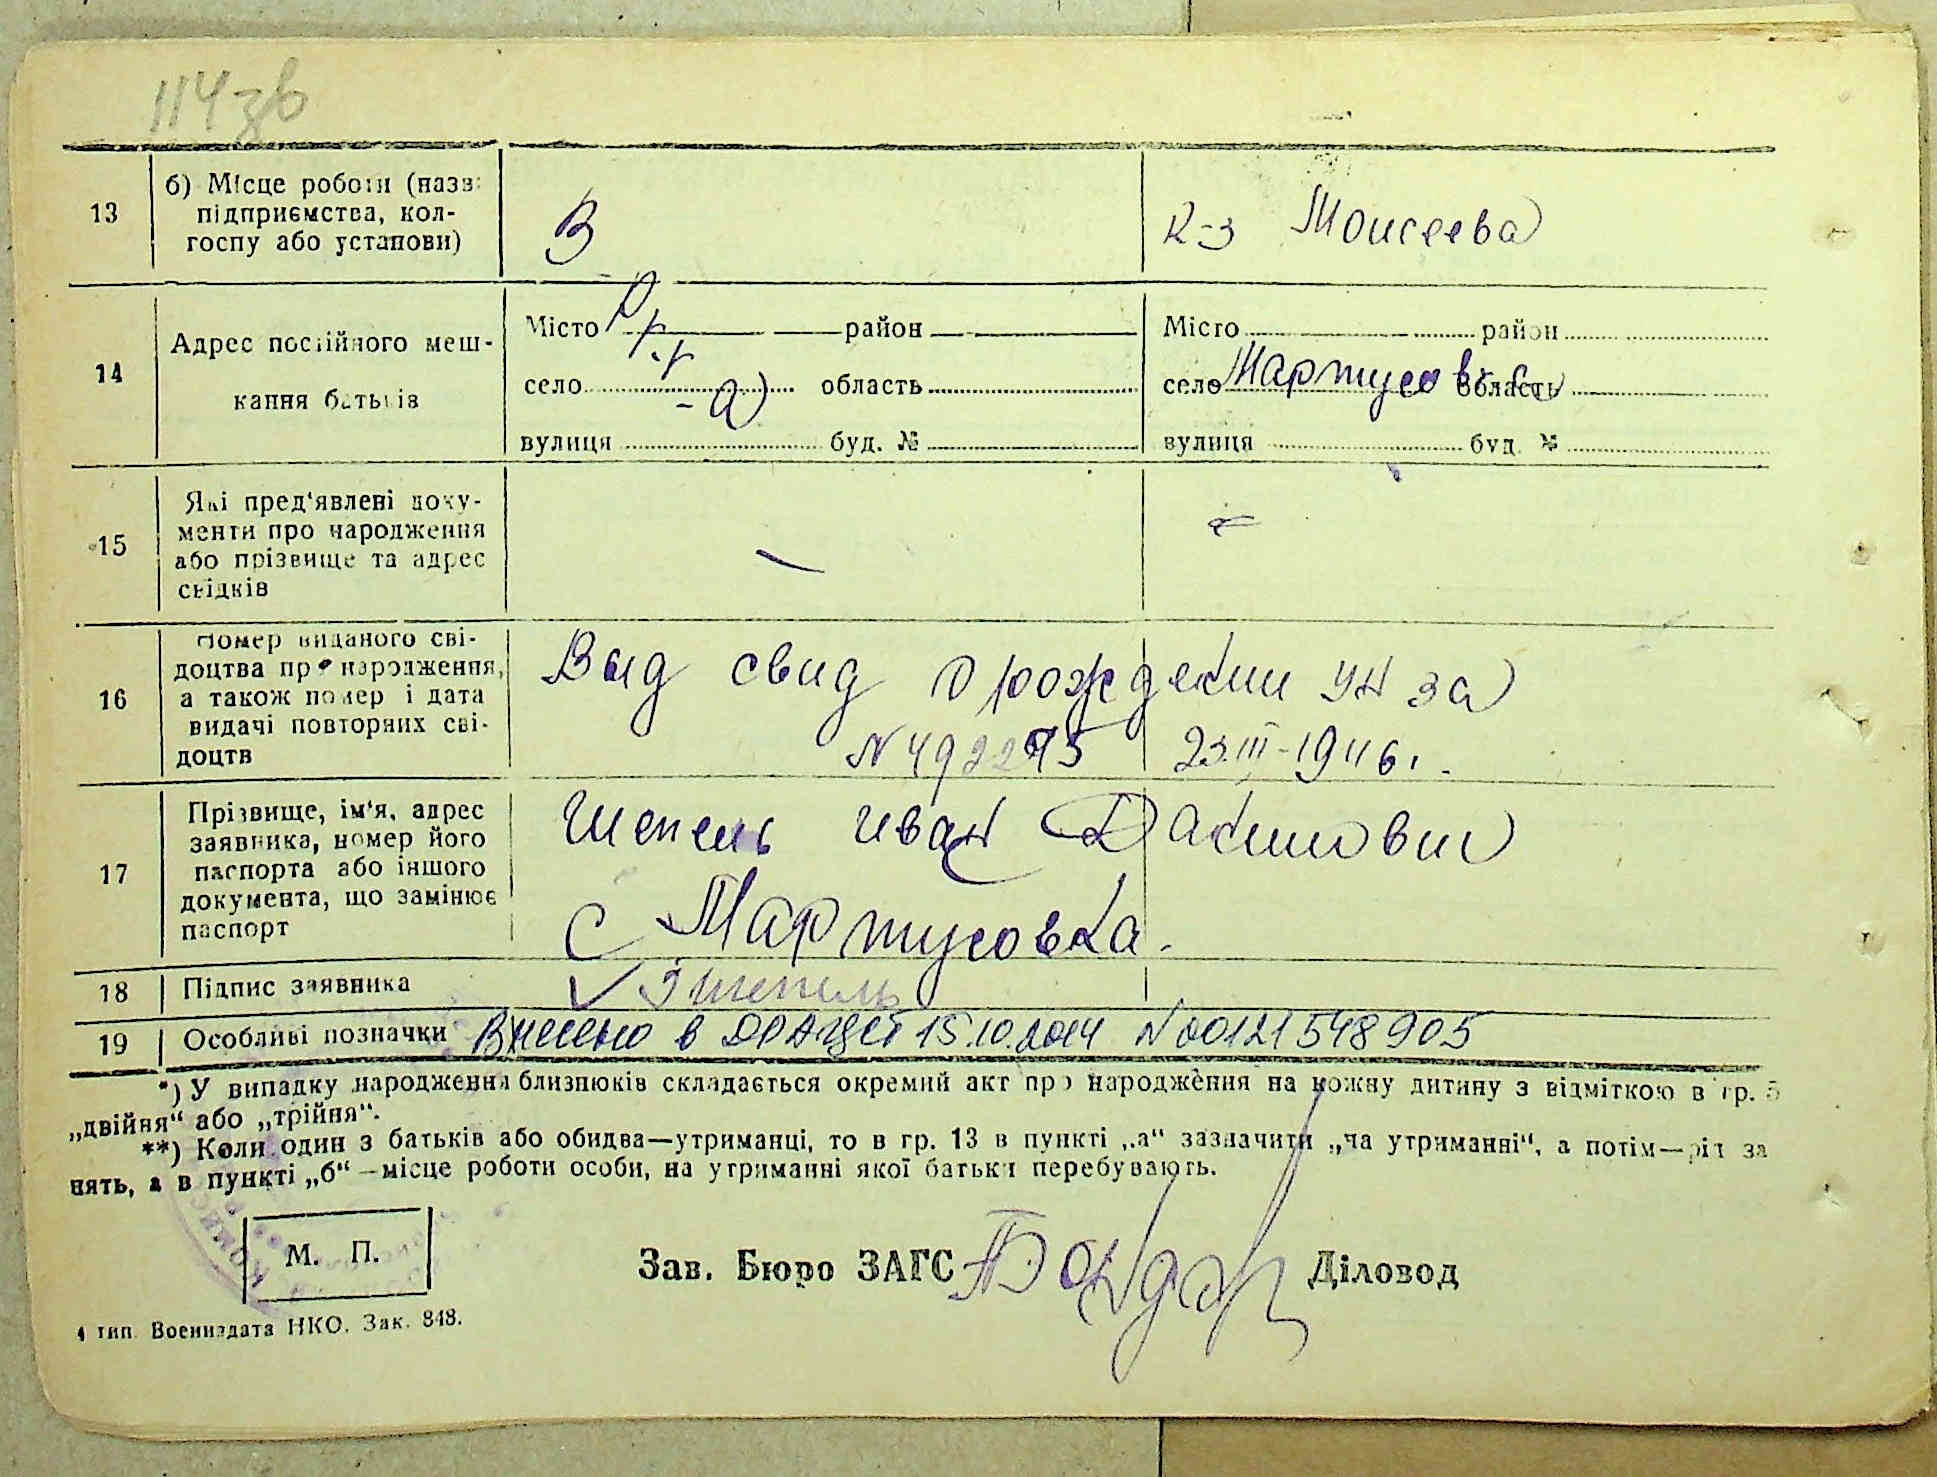 114зв
13 б) Місце роботи (назв
підприємства, кол-
госпу або установи)
К-з Моисеева
14 Адрес постійного меш-
кання батьків
Місто район
село область
вулиця буд. №
Місто район
село Мартусовка область
вулиця буд. №
15 Які пред'явлені доку-
менти про народження
або прізвище та адрес
свідків
16 Номер виданого сві-
доцтва про народження,
а також номер і дата
видачі повторних сві-
доцтв
Выд свид о рождении УН за
N 492275 23.III-1946г.
17 Прізвище, ім'я, адрес
заявника, номер його
паспорта або іншого
документа, що замінює
паспорт
Шепель Иван
с Мартусовка.
18 Підпис заявника
Шепель
19 Особливі позначки Внесено в ДРАЦСГ 15.10.2014 N 00121548905
*) У випадку народження близнюків складається окремий акт про народження на кожну дитину з відміткою в гр. 5
„двійня“ або „трійня“.
**) Коли один з батьків або обидва—утриманці, то в гр. 13 в пункті „а“ зазначити „на утриманні“, а потім—рід за
нять, а в пункті „б“—місце роботи особи, на утриманні якої батьки перебувають.
М. П.
Зав. Бюро ЗАГС Діловод
4 тип. Воениздата НКО. Зак. 848.